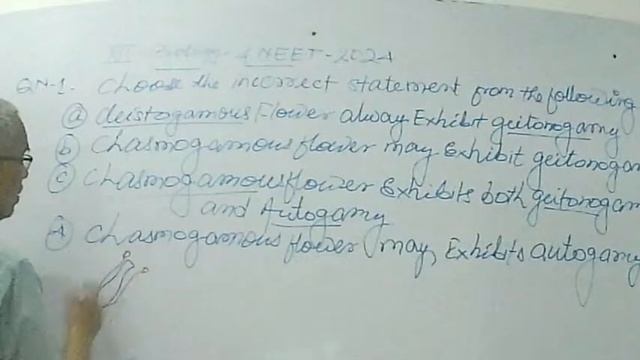 XII Biology & NEET-2024
QN-1. Choose the incorrect statement from the following
(a) cleistogamous flower alway Exhibit geitonogamy
(b) Chasmogamous flower may Exhibit geitonogam
(c) Chasmogamous flower Exhibits both geitonogam
and Autogamy
(d) Chasmogamous flower may, Exhibits autogamy